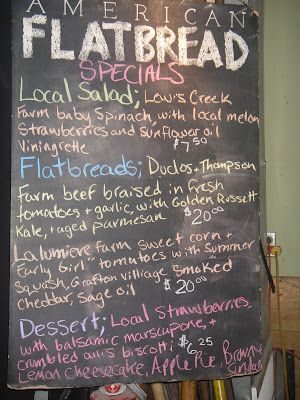 AMERICAN
FLATBREAD
SPECIALS
Local Salad; Lewis Creek
Farm baby Spinach, with local melon
Strawberries and sunflower oil
Viniagrette $7.50
Flatbreads; Duclos & Thompson
Farm beef braised in fresh
tomatoes + garlic, with Golden Russett
Kale, + aged parmesan $20.00
Lalumiere Farm sweet corn +
"Early Girl" tomatoes with Summer
Squash, Grafton Villiage Smoked
cheddar, Sage oil $20.00
Dessert; Local Strawberries
with balsamic marscapone, +
crumbled biscotti $6.25
Lemon Cheesecake, Apple Pie Brownie
Sundae